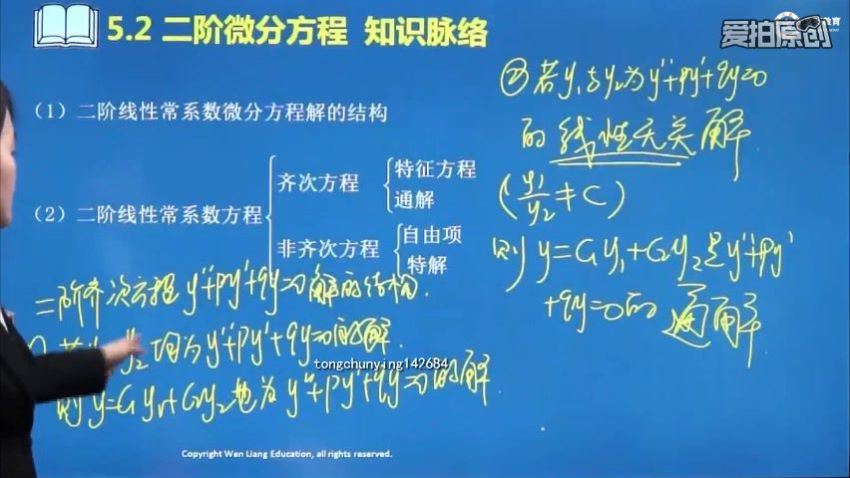 5.2 二阶微分方程 知识脉络
爱拍原创
教育
(1) 二阶线性常系数微分方程解的结构
(2) 二阶线性常系数方程
齐次方程
特征方程
通解
非齐次方程
自由项
特解
二阶齐次方程 y''+py'+qy=0 解的结构.
y₂ 均为 y''+py'+qy=0 的解.
则 y=C₁y₁+C₂y₂ 也为 y''+py'+qy=0 的解
② 若 y₁与y₂为 y''+py'+qy=0
的 线性无关 解
(y₁/y₂ ≠ C)
则 y=C₁y₁+C₂y₂ 是 y''+py'
+qy=0 的 通解
tongchunying142684
Copyright Wen Liang Education, all rights reserved.